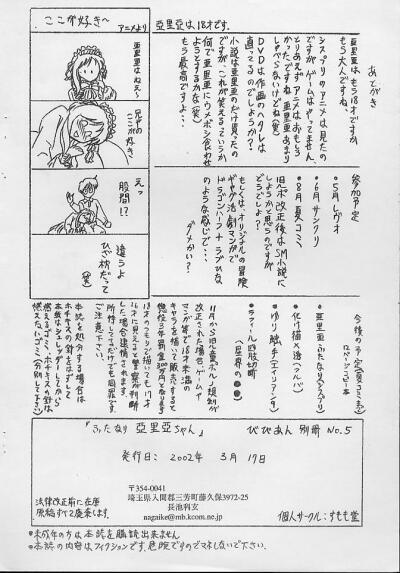 ここが好き〜
アニメより
亜里亜はねえ〜
兄やのここが好き
えっ
股間!?
違うよ
ひざ枕だって
(笑)
亜里亜は18才です。
あとがき
亜里亜はもう18才ですか
もう大人ですね。
シスプリのアニメは見たの
ですが、ゲームはやってません。
とりあえずアニメはおもしろ
かったですね 亜里亜あまり
しゃべらないけどね(笑)
DVDは作画のヘタレは
直ってるのでしょうか?
小説は亜里亜のだけ買ったの
ですが、これが笑えるっていうか
何で亜里亜にウメボシ食わせ
ようとするかな(笑)
もう最高ですよ!
参加予定
●5月レヴォ
●6月サンクリ
●8月夏コミ
旧ルポ改正後はSM小説に
しようかと思うのですが
どうでしょ?
もしくは、オリジナルの冒険
ギャグ活劇マンガで
ドラゴンハーフ+ラブひな
のような感じで…
ダメかい?
今後の予定(夏コミまで)
12ページコピー本
●亜里亜ふたなり(シスプリ)
●化け描×透(フルバ)
●ゆり触手(エイリアン9)
●ラフィール四肢切断
(星界の●●)
11月からS旧児童ポルノ規制が
改正された場合、ゲームや
マンガ等で18才未満の
キャラを描いて販売すると
懲役3年罰金300万円となります
18才のつもりで描いても17才
16才に見えると警察が判断
した場合逮捕されます。
所持してるだけでも同罪です
ご注意下さい。
本誌を処分する場合は
ホチキスの針をはずして
本紙はシュレッダーしてから
燃えるゴミ、ホチキスの針は
燃えないゴミ、分別してしょう!
『ふたなり 亜里亜ちゃん』
びびあん 別冊 No.5
発行日: 2002年 3月 17日
〒354-0041
埼玉県入間郡三芳町藤久保3972-25
長池判玄
nagaike@mb.kcom.ne.jp
法律改正前に在庫
原稿すべて廃棄します。
個人サークル:すもも堂
●未成年の方は本誌を購読出来ません
●本誌の内容はフィクションです、危険ですのでマネしないで下さい。